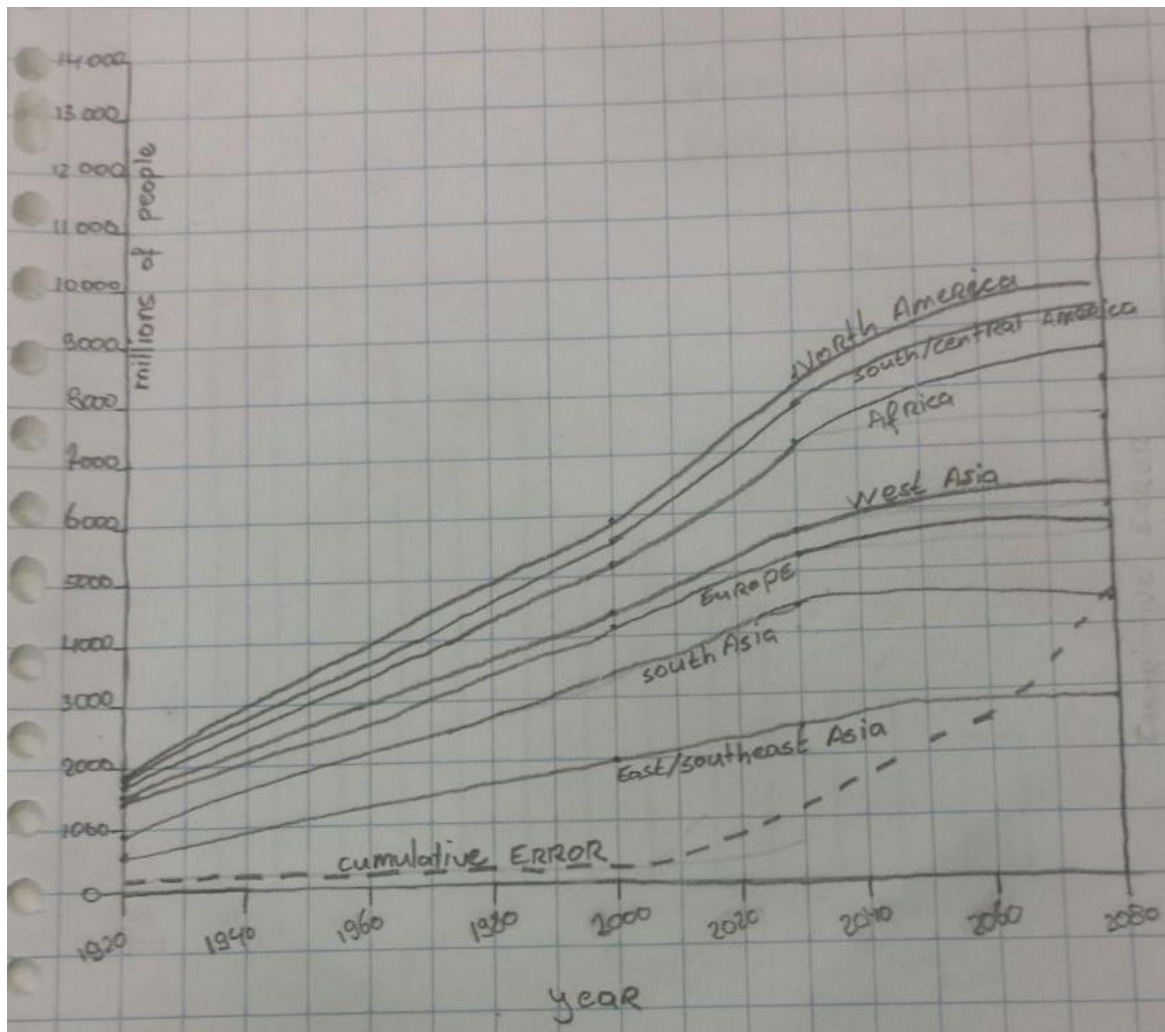 14.000
13.000
12.000
11.000
10.000
9000
8000
7000
6000
5000
4000
3000
2000
1000
0
millions of people
North America
south/central America
Africa
West Asia
EuROPE
south Asia
East/southeast Asia
cumulative ERROR
1920 1940 1960 1980 2000 2020 2040 2060 2080
yeaR